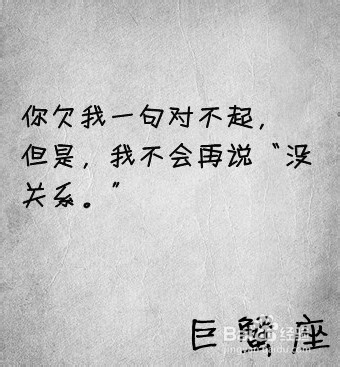 你欠我一句对不起，
但是，我不会再说“没
关系。”
巨蟹座
Bai 经验
jingyan.baidu.com